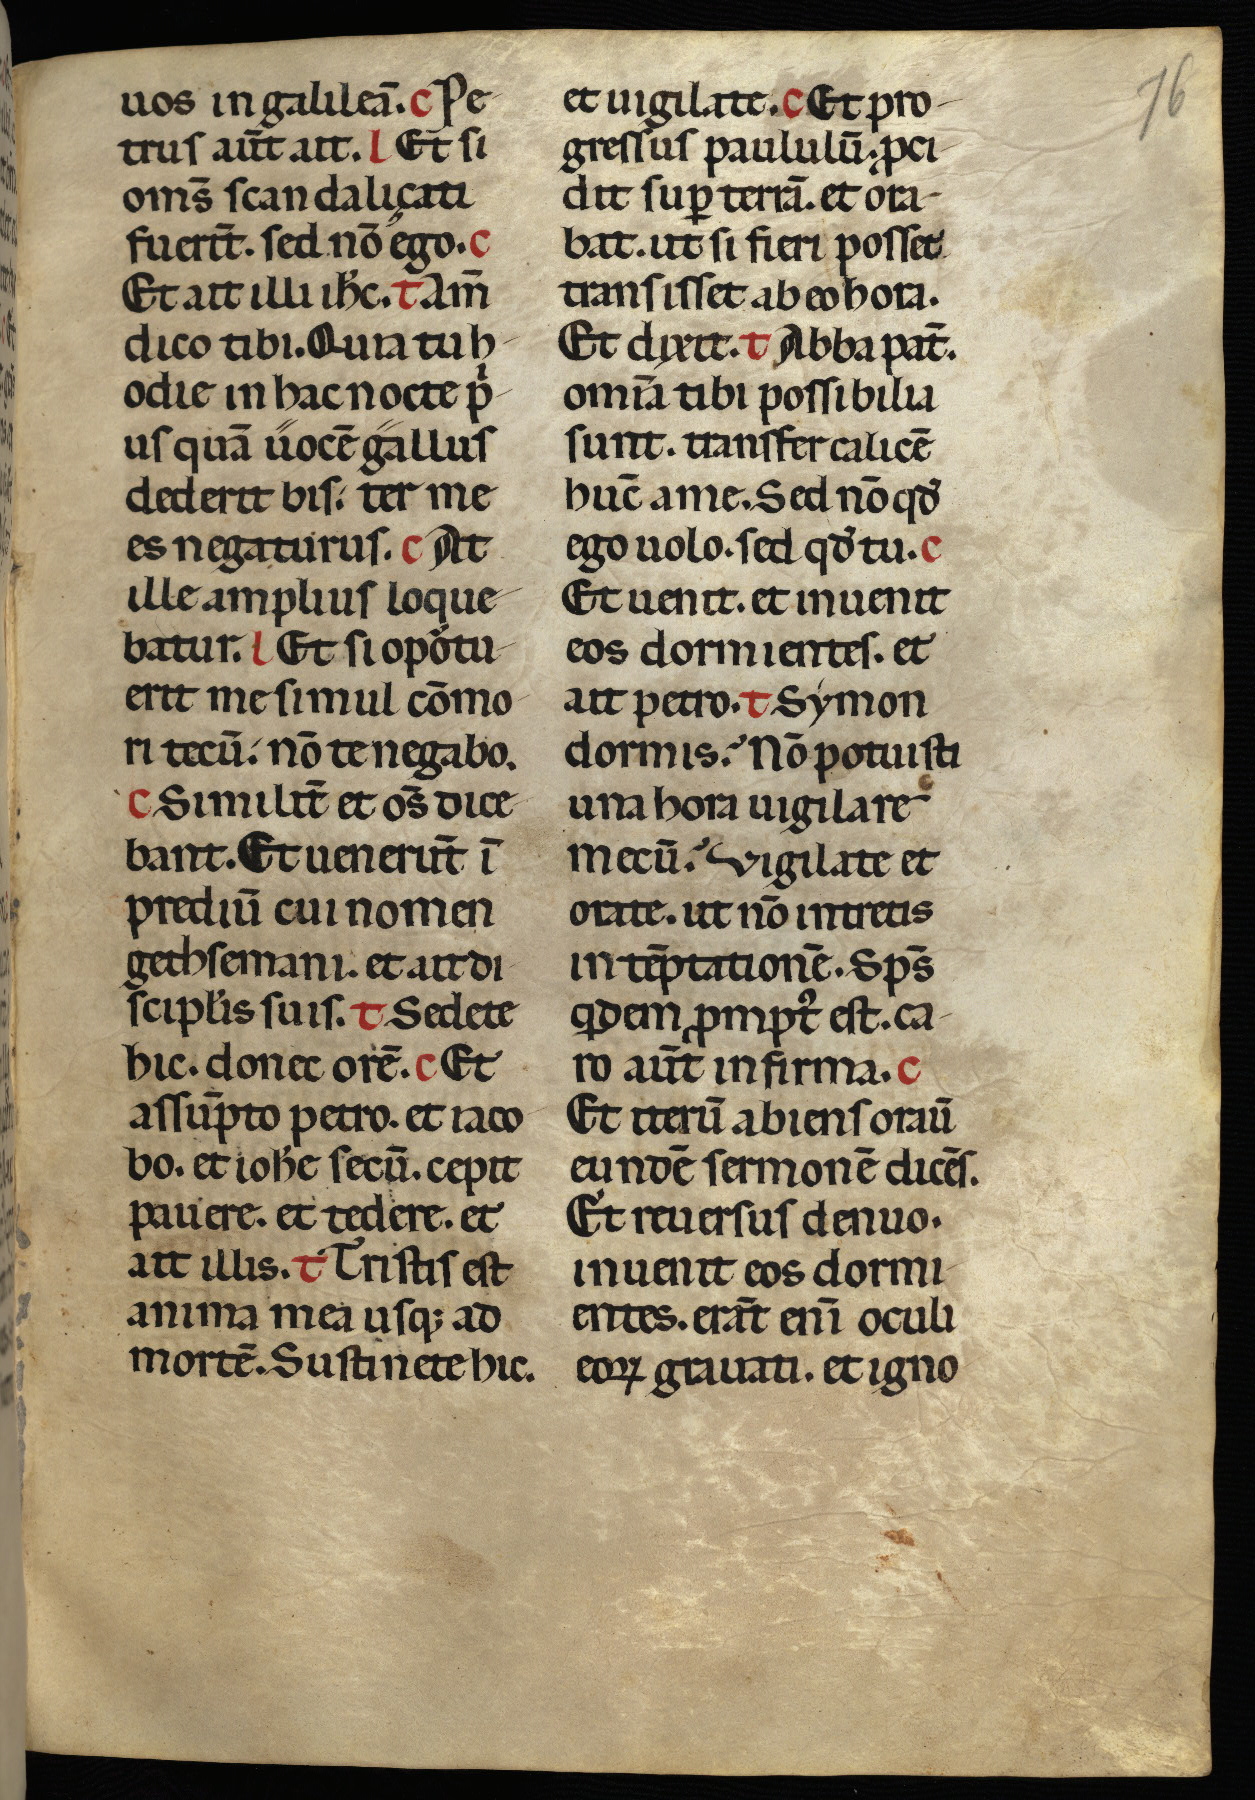 76
uos in galileā. c Pe-
trus aūt ait. l Et si
om̄s scandalicati
fuerīt. sed nō ego. c
Et ait illi ih̄c. t Am̄
dico tibi. Quia tu h-
odie in hac nocte p̍-
us quā uocē gallus
dederit bis: ter me
es negaturus. c At
ille amplius loque-
batur. l Et si oportu-
erit me simul cōmo-
ri tecū: nō te negabo.
c Similit̄ et om̄s dice-
bant. Et uenerūt ī
prediū cui nomen
gethsemani. et ait di-
scipl̄is suis. t Sedete
hic. donec orē. c Et
assūpto petro. et iaco-
bo. et ioh̄e secū. cepit
pauere. et tedere. et
ait illis. t Tristis est
anima mea usq; ad
mortē. Sustinete hic.
et uigilate. c Et pro-
gressus paululū. ꝓci-
dit suꝑ terrā. et ora-
bat. ut si fieri posset
transisset ab eo hora.
Et dixit. t Abba pat̄.
omīa tibi possibilia
sunt. transfer calicē
hūc a me. Sed nō qd̄
ego uolo. sed qd̄ tu. c
Et uenit. et inuenit
eos dormientes. et
ait petro. t Sẏmon
dormis? Nō potuisti
una hora uigilare
mecū? Vigilate et
orate. ut nō intretis
in tēptationē. Sp̄s
qdem ꝓmpt᷒ est. ca-
ro aūt infirma. c
Et iterū abiens oraū
eundē sermonē dicēs.
Et reuersus denuo.
inuenit eos dormi-
entes. erāt enī oculi
eoꝝ grauati. et igno